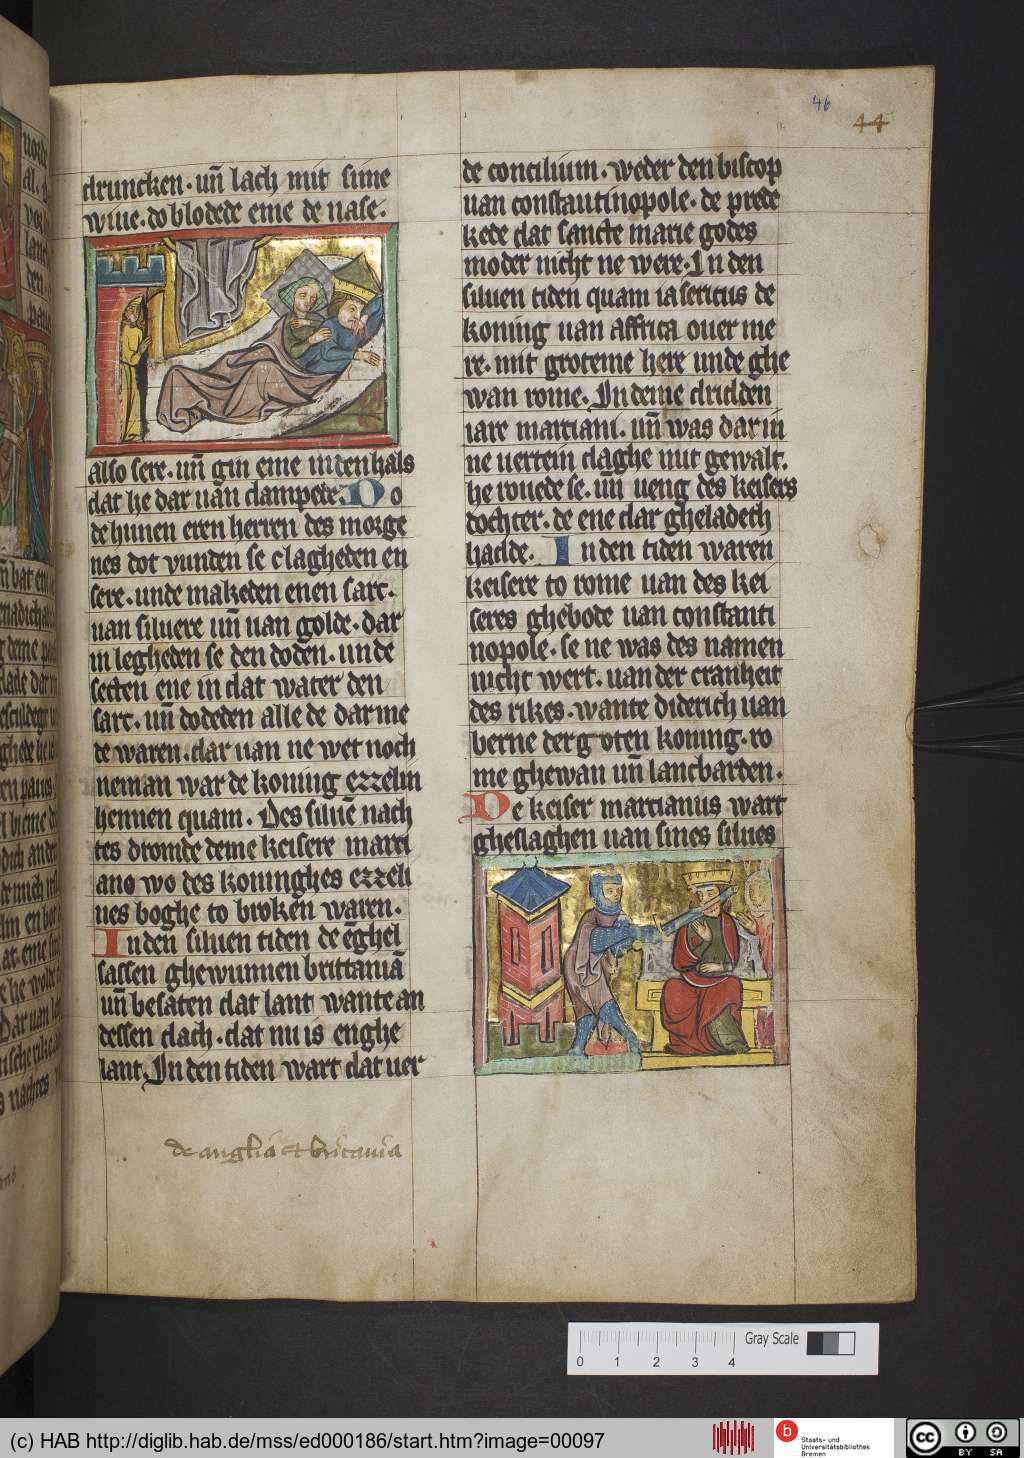 46
44
druncken · uñ lach mit sime
wiue · do blodede eme de nase ·
also sere · uñ gin eme in den hals
dat he dar uan dampete · Do
de hunen eren herren des morge
nes dot vunden se clagheden en
sere · unde makeden enen sarc ·
uan siluere uñ uan golde · dar
in legheden se den doden · unde
setten ene in dat water den
sarc · uñ dodeden alle de dar me
de waren · dar uan ne wet noch
neman war de koning ezzelin
hennen quam · Des siluē nach
tes dromde deme keisere marci
ano wo des koninghes ezzeli
nes boghe to broken waren ·
In den siluen tiden de ēghel
sassen ghewunnen brittaniā
uñ besaten dat lant wante an
dessen dach · dat nu is enghe
lant · In den tiden wart dat uer
de anglia et britania
de concilium · weder den biscop
uan constantinopole · de prede
kede dat sancte marie godes
moder nicht ne were · In den
siluen tiden quam iasericus de
koning uan affrica ouer me
re · mit groteme here unde ghe
wan rome · In deme dridden
iare marciani · uñ was dar in
ne uertein daghe mit gewalt ·
he rouede se · uñ ueng des keisers
dochter · de ene dar gheladeth
hadde · In den tiden waren
keisere to rome uan des kei
seres ghebode uan constanti
nopole · se ne was des namen
nicht wert · uan der cranheit
des rikes · wante diderich uan
berne der g oten koning · ro
me ghewan uñ lancbarden ·
De keiser marcianus wart
gheslaghen uan sines silues
0 1 2 3 4
Gray Scale
(c) HAB http://diglib.hab.de/mss/ed000186/start.htm?image=00097
b
Staats- und
Universitätsbibliothek
Bremen
cc BY SA